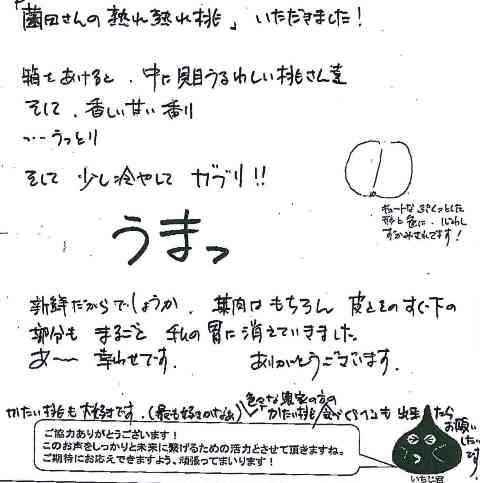 「薗田さんの熟れ熟れ桃」いただきました！
箱をあけると、中に見目うるわしい桃さん達
そして、香しい甘い香り
…うっとり
そして 少し冷やして ガブリ！！
キュートな ぷくっとした
形と色に、いわし
ずかみされてです！
うまっ
新鮮だからでしょうか、果肉は もちろん 皮とそのすぐ下の
部分も まるごと 私の胃に消えていきました。
あ〜 幸わせです。 ありがとうございます。
かたい桃も 大好きです。(最も好きかなぁ) 色々な農家の方の
かたい桃 食べくらべも 出来たら
お願い
したい
です。
ご協力ありがとうございます！
このお声をしっかりと未来に繋げるための活力とさせて頂きますね。
ご期待にお応えできますよう、頑張ってまいります！
いちじ君